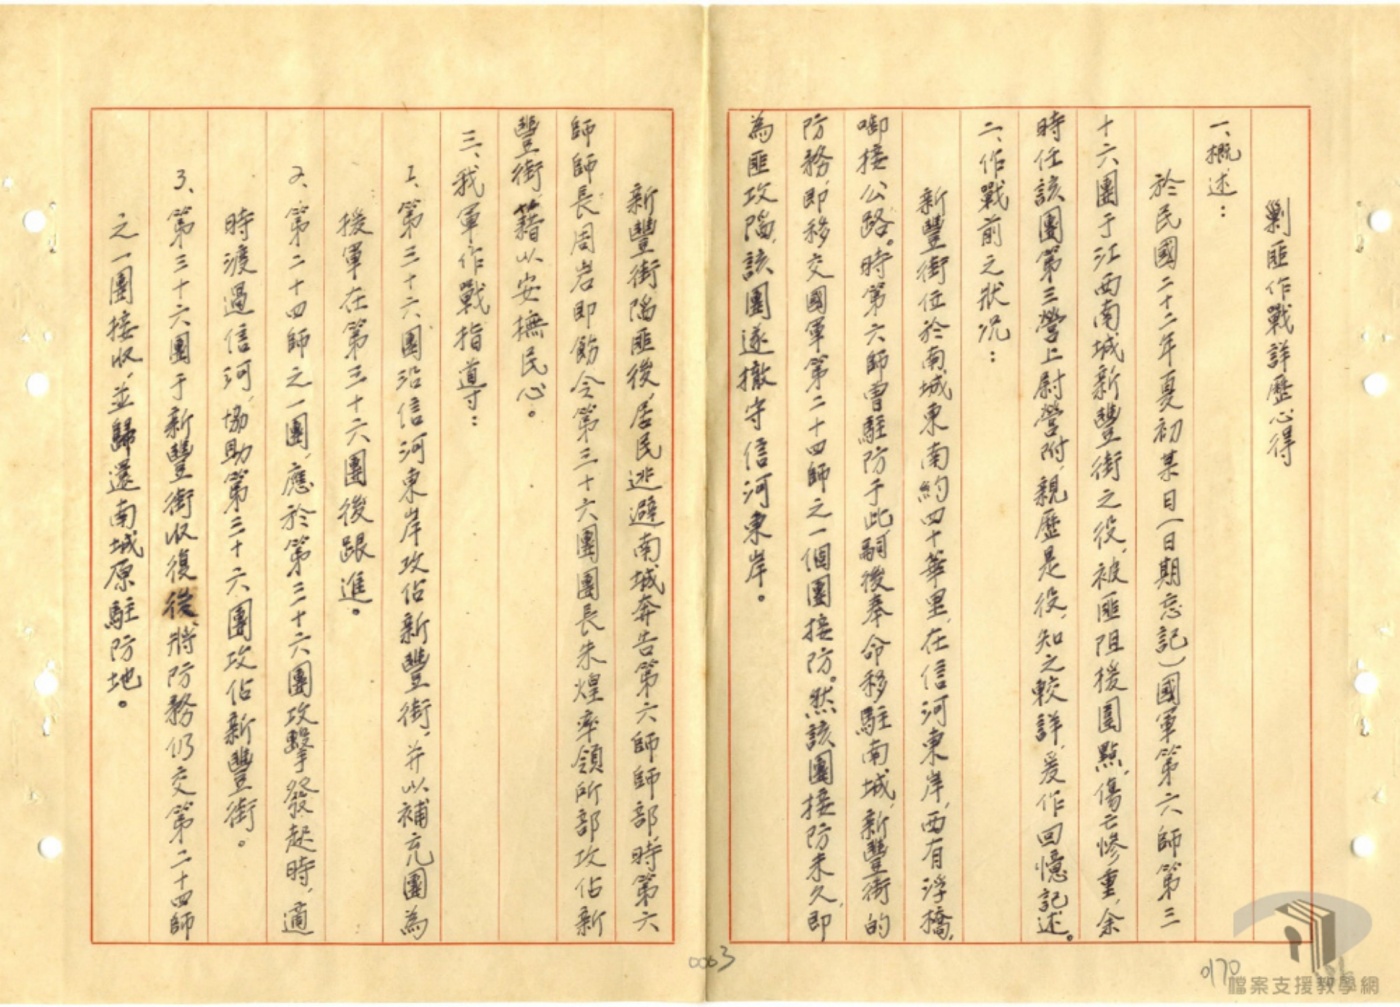 剿匪作戰詳歷心得
一、概述：
於民國二十二年夏初某日(日期忘記)國軍第六師第三
十六團于江西南城新豐街之役，被匪阻援圍點，傷亡慘重，余
時任該團第三營上尉營附，親歷是役，知之較詳，爰作回憶記述。
二、作戰前之狀況：
新豐街位於南城東南約四十華里，在信河東岸，西有浮橋，
啣接公路。時第六師曾駐防于此，嗣後奉命移駐南城，新豐街的
防務，即移交國軍第二十四師之一個團接防。然該團接防未久，即
為匪攻陷，該團遂撤守信河東岸。
新豐街陷匪後，居民逃避南城奔告第六師師部，時第六
師師長周岩即飭令第三十六團團長朱煌率領所部攻佔新
豐街，藉以安撫民心。
三、我軍作戰指導：
1、第三十六團沿信河東岸攻佔新豐街，并以補充團為
援軍在第三十六團後跟進。
2、第二十四師之一團，應於第三十六團攻擊發起時，適
時渡過信河，協助第三十六團攻佔新豐街。
3、第三十六團于新豐街收復後，將防務仍交第二十四師
之一團接收，並歸還南城原駐防地。
0063
0170
檔案支援教學網